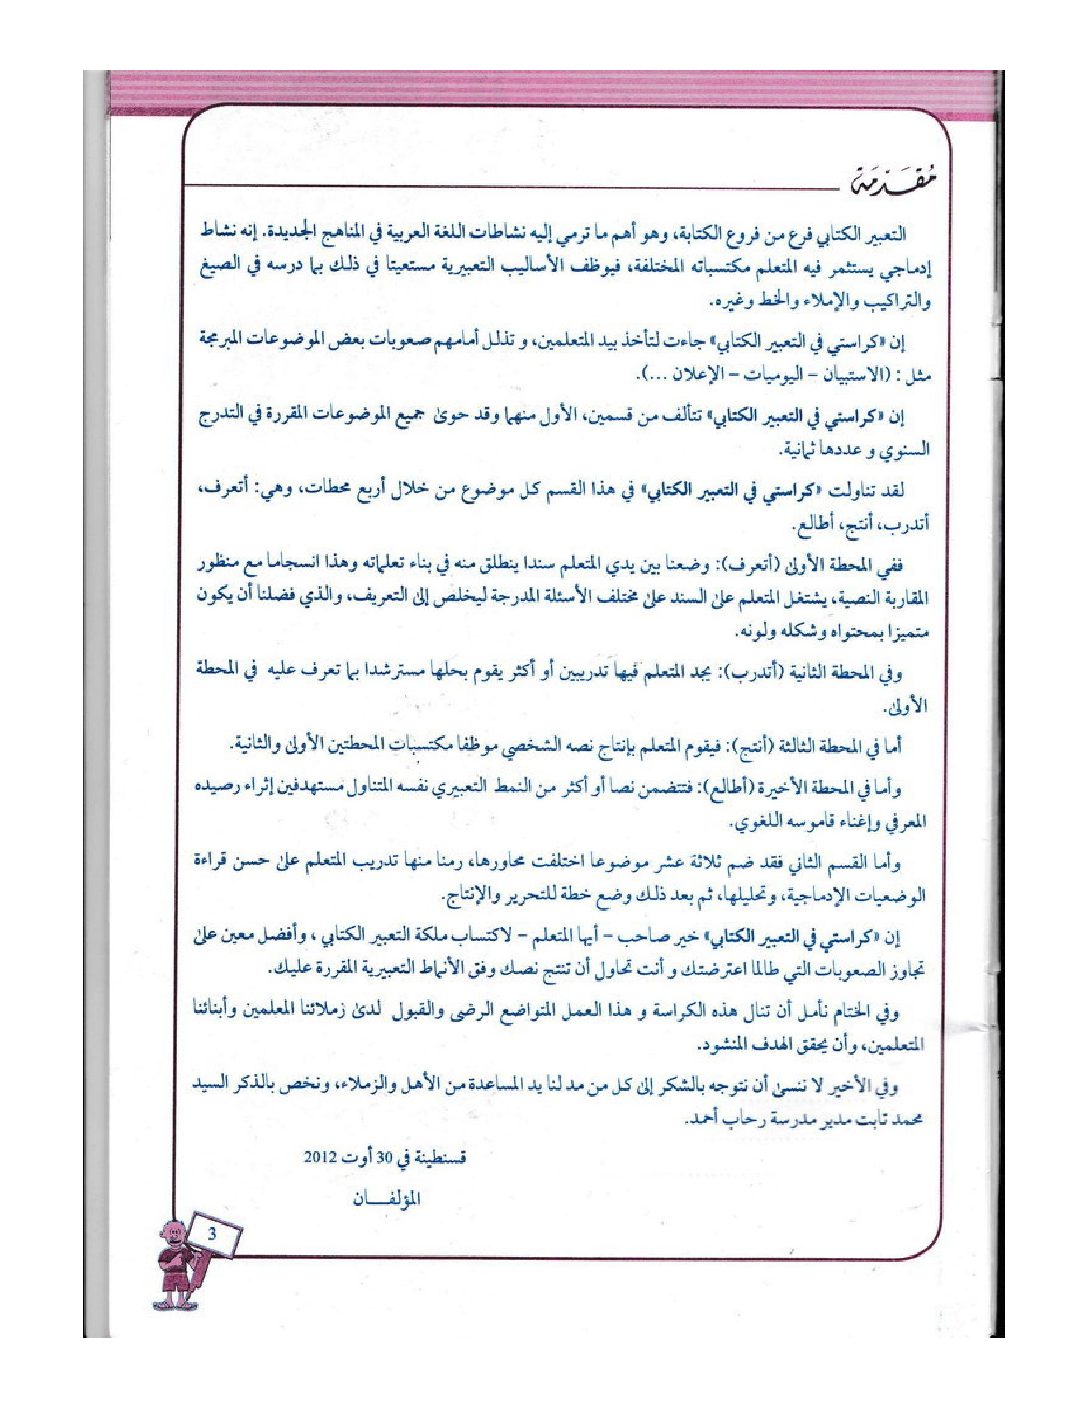 مُقَدِّمَة
التعبير الكتابي فرع من فروع الكتابة، وهو أهم ما ترمي إليه نشاطات اللغة العربية في المناهج الجديدة. إنه نشاط
إدماجي يستثمر فيه المتعلم مكتسباته المختلفة، فيوظف الأساليب التعبيرية مستعينا في ذلك بما درسه في الصيغ
والتراكيب والإملاء والخط وغيره.
إن «كراستي في التعبير الكتابي» جاءت لتأخذ بيد المتعلمين، و تذلل أمامهم صعوبات بعض الموضوعات المبرمجة
مثل : (الاستبيان – اليوميات – الإعلان ...).
إن «كراستي في التعبير الكتابي» تتألف من قسمين، الأول منهما وقد حوى جميع الموضوعات المقررة في التدرج
السنوي و عددها ثمانية.
لقد تناولت «كراستي في التعبير الكتابي» في هذا القسم كل موضوع من خلال أربع محطات، وهي: أتعرف،
أتدرب، أنتج، أطالع.
ففي المحطة الأولى (أتعرف): وضعنا بين يدي المتعلم سندا ينطلق منه في بناء تعلماته وهذا انسجاما مع منظور
المقاربة النصية، يشتغل المتعلم على السند على مختلف الأسئلة المدرجة ليخلص إلى التعريف، والذي فضلنا أن يكون
متميزا بمحتواه وشكله ولونه.
وفي المحطة الثانية (أتدرب): يجد المتعلم فيها تدريبين أو أكثر يقوم بحلها مسترشدا بما تعرف عليه في المحطة
الأولى.
أما في المحطة الثالثة (أنتج): فيقوم المتعلم بإنتاج نصه الشخصي موظفا مكتسبات المحطتين الأولى والثانية.
وأما في المحطة الأخيرة (أطالع): فتتضمن نصا أو أكثر من النمط التعبيري نفسه المتناول مستهدفين إثراء رصيده
المعرفي وإغناء قاموسه اللغوي.
وأما القسم الثاني فقد ضم ثلاثة عشر موضوعا اختلفت محاورها، رمنا منها تدريب المتعلم على حسن قراءة
الوضعيات الإدماجية، وتحليلها، ثم بعد ذلك وضع خطة للتحرير والإنتاج.
إن «كراستي في التعبير الكتابي» خير صاحب – أيها المتعلم – لاكتساب ملكة التعبير الكتابي ، وأفضل معين على
تجاوز الصعوبات التي طالما اعترضتك و أنت تحاول أن تنتج نصك وفق الأنماط التعبيرية المقررة عليك.
وفي الختام نأمل أن تنال هذه الكراسة و هذا العمل المتواضع الرضى والقبول لدى زملائنا المعلمين وأبنائنا
المتعلمين، وأن يحقق الهدف المنشود.
وفي الأخير لا ننسى أن نتوجه بالشكر إلى كل من مد لنا يد المساعدة من الأهل والزملاء، ونخص بالذكر السيد
محمد ثابت مدير مدرسة رحاب أحمد.
قسنطينة في 30 أوت 2012
المؤلفــان
3